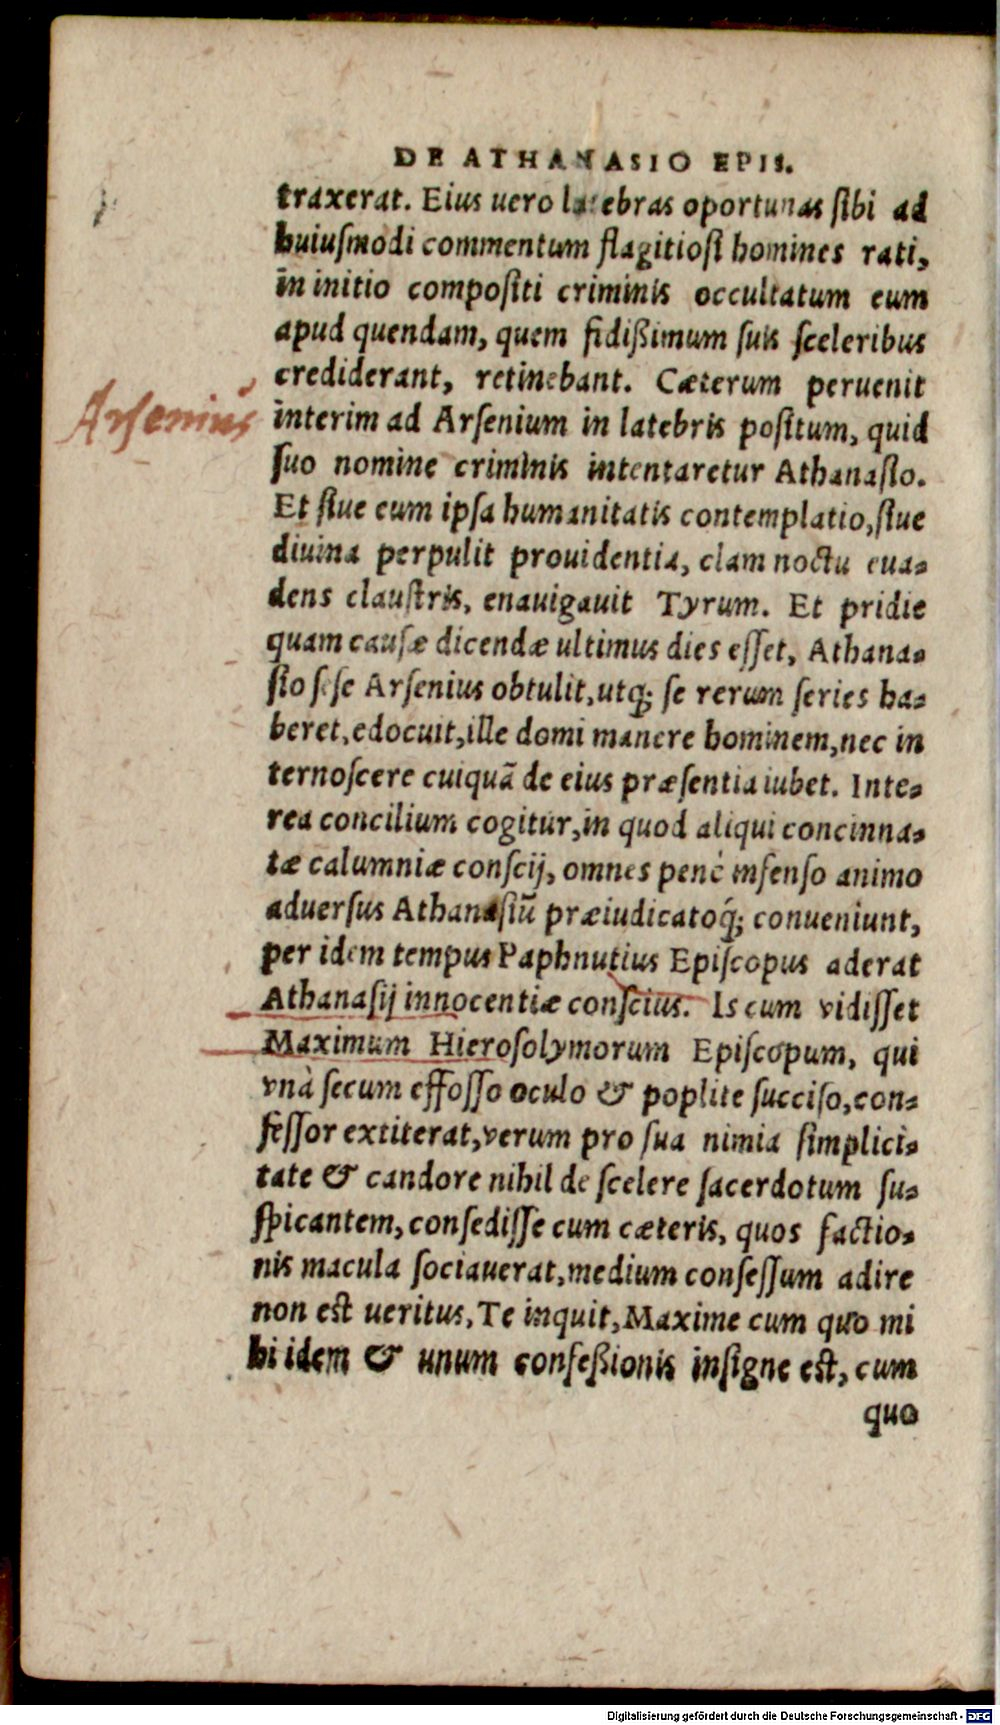 DE ATHANASIO EPIS.
traxerat. Eius uero latebras oportunas ſibi ad
huiuſmodi commentum flagitioſi homines rati,
in initio compoſiti criminis occultatum eum
apud quendam, quem fidißimum ſuis ſceleribus
crediderant, retinebant. Cæterum peruenit
Arſenius
interim ad Arſenium in latebris poſitum, quid
ſuo nomine criminis intentaretur Athanaſio.
Et ſiue eum ipſa humanitatis contemplatio, ſiue
diuina perpulit prouidentia, clam noctu eua-
dens clauſtris, enauigauit Tyrum. Et pridie
quam cauſæ dicendæ ultimus dies eſſet, Athana-
ſio ſeſe Arſenius obtulit, utq; ſe rerum ſeries ha-
beret, edocuit, ille domi manere hominem, nec in
ternoſcere cuiquã de eius præſentia iubet. Inte-
rea concilium cogitur, in quod aliqui concinna-
tæ calumniæ conſcij, omnes penè infenſo animo
aduerſus Athanaſiũ præiudicatoq́; conueniunt,
per idem tempus Paphnutius Epiſcopus aderat
Athanaſij innocentiæ conſcius. Is cum vidiſſet
Maximum Hieroſolymorum Epiſcopum, qui
vnà ſecum effoſſo oculo & poplite ſucciſo, con-
feſſor extiterat, verum pro ſua nimia ſimplici-
tate & candore nihil de ſcelere ſacerdotum ſu-
ſpicantem, conſediſſe cum cæteris, quos factio-
nis macula ſociauerat, medium conſeſſum adire
non eſt ueritus, Te inquit, Maxime cum quo mi
hi idem & unum confeßionis inſigne eſt, cum
quo
Digitalisierung gefördert durch die Deutsche Forschungsgemeinschaft - DFG